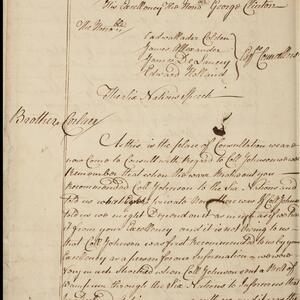 His Excellency the Hon.ble George Clinton
The Hon.ble
Cadwallader Colden
James Alexander
James De Lancey
Edward Holland
Esq.rs Councillors
The Six Nations Speech
Brother Corlaer
As this is the place of Consultation we are
now Come to Consult with Regard to Coll Johnson we
remember that when the were you
Recommended Coll Johnson to the Six Nations and
told us whatever he was
told us we might Depend on it as much as if
from your Excellency and it is not owing to us
that Coll Johnson was first Recommended to us by your
Excellency as a person for our Information, we were
very much Shocked when Coll Johnson sent a Belt of
Wampum through the Six Nations to Inform us that